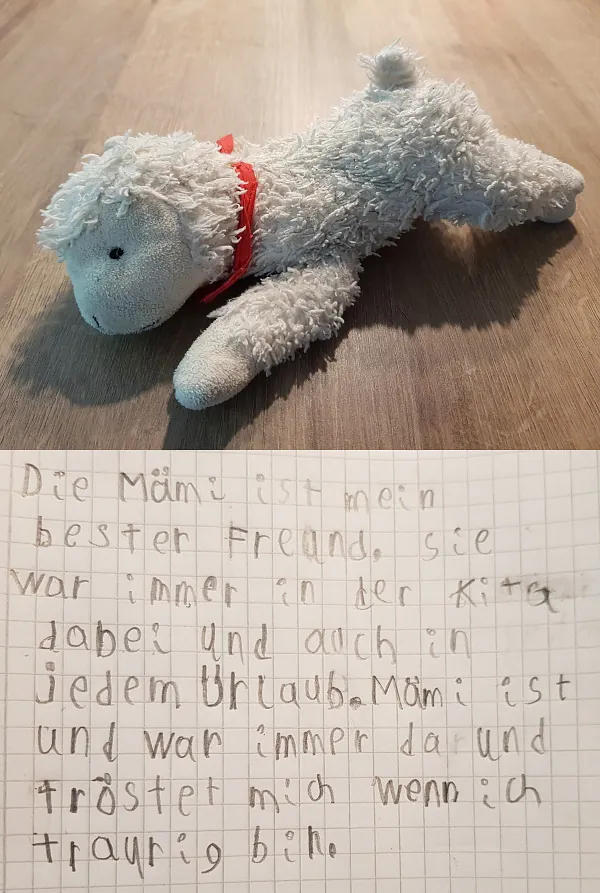 Die Mämi ist mein
bester Freund. sie
war immer in der Kita
dabei und auch in
jedem Urlaub. Mämi ist
und war immer da und
tröstet mich wenn ich
traurig bin.